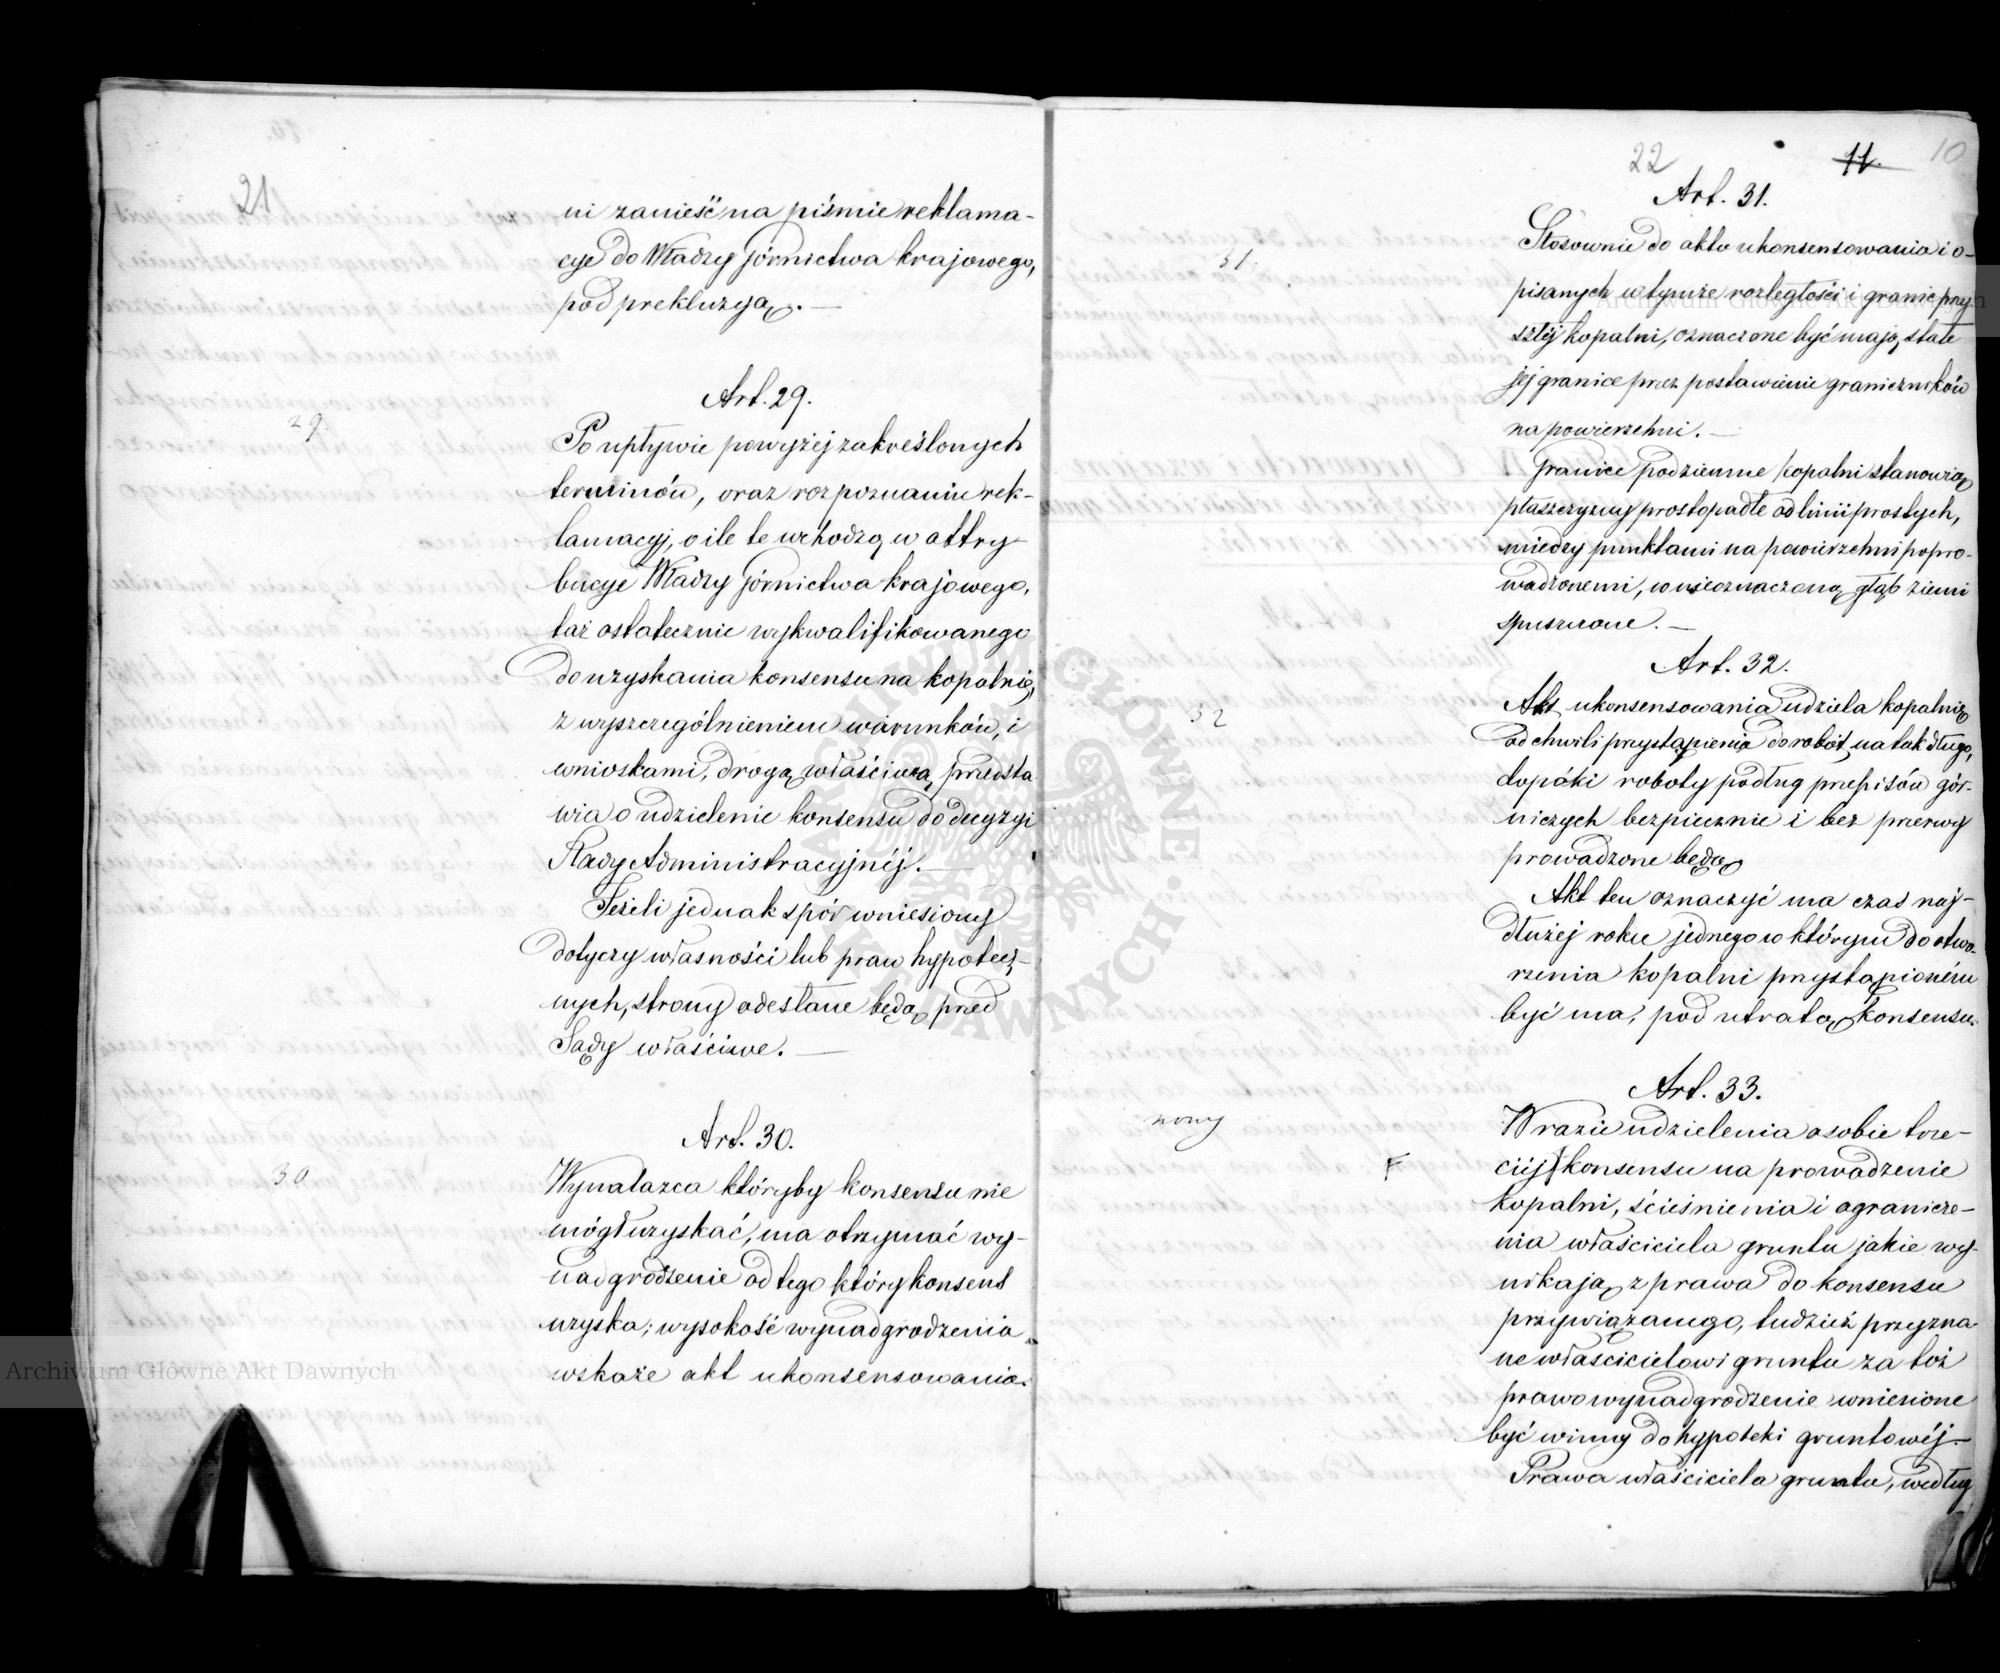 21
ni zanieść na piśmie reklama-
cye do Władzy górnictwa krajowego,
pod prekluzyą. —
Art. 29.
29.
Po upływie powyżej zakreślonych
terminów, oraz rozpoznaniu rek-
lamacyj, o ile te wchodzą w attry-
bucye Władzy górnictwa krajowego,
taż ostatecznie wykwalifikowanego
do uzyskania konsensu na kopalnię,
z wyszczególnieniem warunków, i
wnioskami, drogą właściwą przedsta
wia o udzielenie konsensu do decyzyi
Rady Administracyjnéj. —
Jeżeli jednak spór wniesiony
dotyczy własności lub praw hypotecz-
nych, strony odesłane będą, przed
Sądy właściwe. —
Art. 30.
30
Wynalazca któryby konsensu nie
mógł uzyskać, ma otrzymać wy-
nadgrodzenie od tego który konsens
uzyska; wysokość wynadgrodzenia
wskaże akt ukonsensowania.
22
11.
10
Art. 31.
31.
Stosownie do aktu ukonsensowania i o-
pisanych w tymże rozległości i granic przy
szłéj kopalni, oznaczone być mają stałe
jej granice przez postawienie graniczników
na powierzchni. —
Granice podziemne kopalni stanowią
płaszczyzny prostopadłe od linii prostych,
między punktami na powierzchni popro-
wadzonemi, w nieoznaczoną głąb ziemi
spuszczone. —
Art. 32.
32
Akt ukonsensowania udziela kopalnię
od chwili przystąpienia do robót, na tak długo,
dopóki roboty podług przepisów gór-
niczych bezpiecznie i bez przerwy
prowadzone będą
Akt ten oznaczyć ma czas naj-
dłużej roku jednego w którym do otwo-
rzenia kopalni przystąpioném
być ma, pod utratą konsensu.
Art. 33.
nowy
W razie udzielenia osobie trze-
F
ciéj konsensu na prowadzenie
kopalni, ścieśnienia i ogranicze-
nia właściciela gruntu jakie wy-
nikają z prawa do konsensu
przywiązanego, tudzież przyzna-
ne właścicielowi gruntu za toż
prawo wynadgrodzenie wniesione
być winny do hypoteki gruntowéj. —
Prawa właściciela gruntu, według
Archiwum Główne Akt Dawnych
Archiwum Główne Akt Dawnych
ARCHIWUM GŁÓWNE AKT DAWNYCH